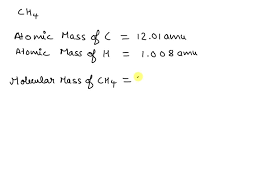 CH4
Atomic Mass of C = 12.01 amu
Atomic Mass of H = 1.008 amu
Molecular Mass of CH4 =